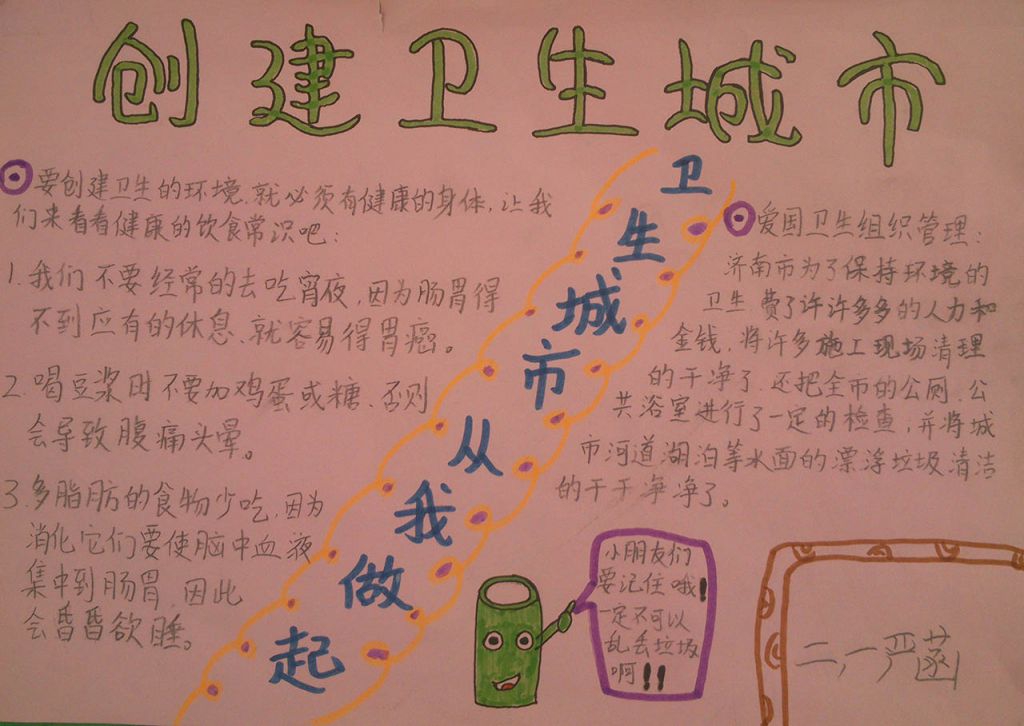 创建卫生城市
要创建卫生的环境.就必须有健康的身体,让我
们来看看健康的饮食常识吧:
1.我们不要经常的去吃宵夜,因为肠胃得
不到应有的休息、就容易得胃癌。
2.喝豆浆时不要加鸡蛋或糖、否则
会导致腹痛头晕。
3.多脂肪的食物少吃,因为
消化它们要使脑中血液
集中到肠胃,因此
会昏昏欲睡。
卫生城市从我做起
爱国卫生组织管理:
济南市为了保持环境的
卫生费了许许多多的人力和
金钱,将许多施工现场清理
的干净了.还把全市的公厕.公
共浴室进行了一定的检查,并将城
市河道湖泊等水面的漂浮垃圾清洁
的干干净净了。
小朋友们
要记住哦!
一定不可以
乱丢垃圾
啊!!
二,一严菡